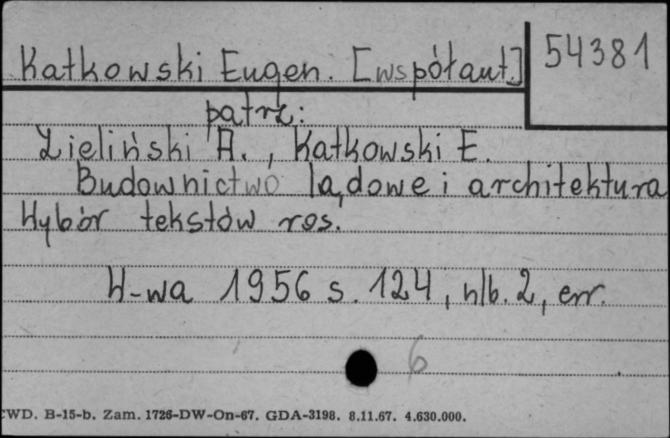 Katkowski Eugen. [współaut.] 54381
patrz:
Zieliński A., Katkowski E.
Budownictwo lądowe i architektura
Wybór tekstów ros.
W-wa 1956 s. 124, nlb. 2, err.
6
CWD. B-15-b. Zam. 1726-DW-On-67. GDA-3198. 8.11.67. 4.630.000.